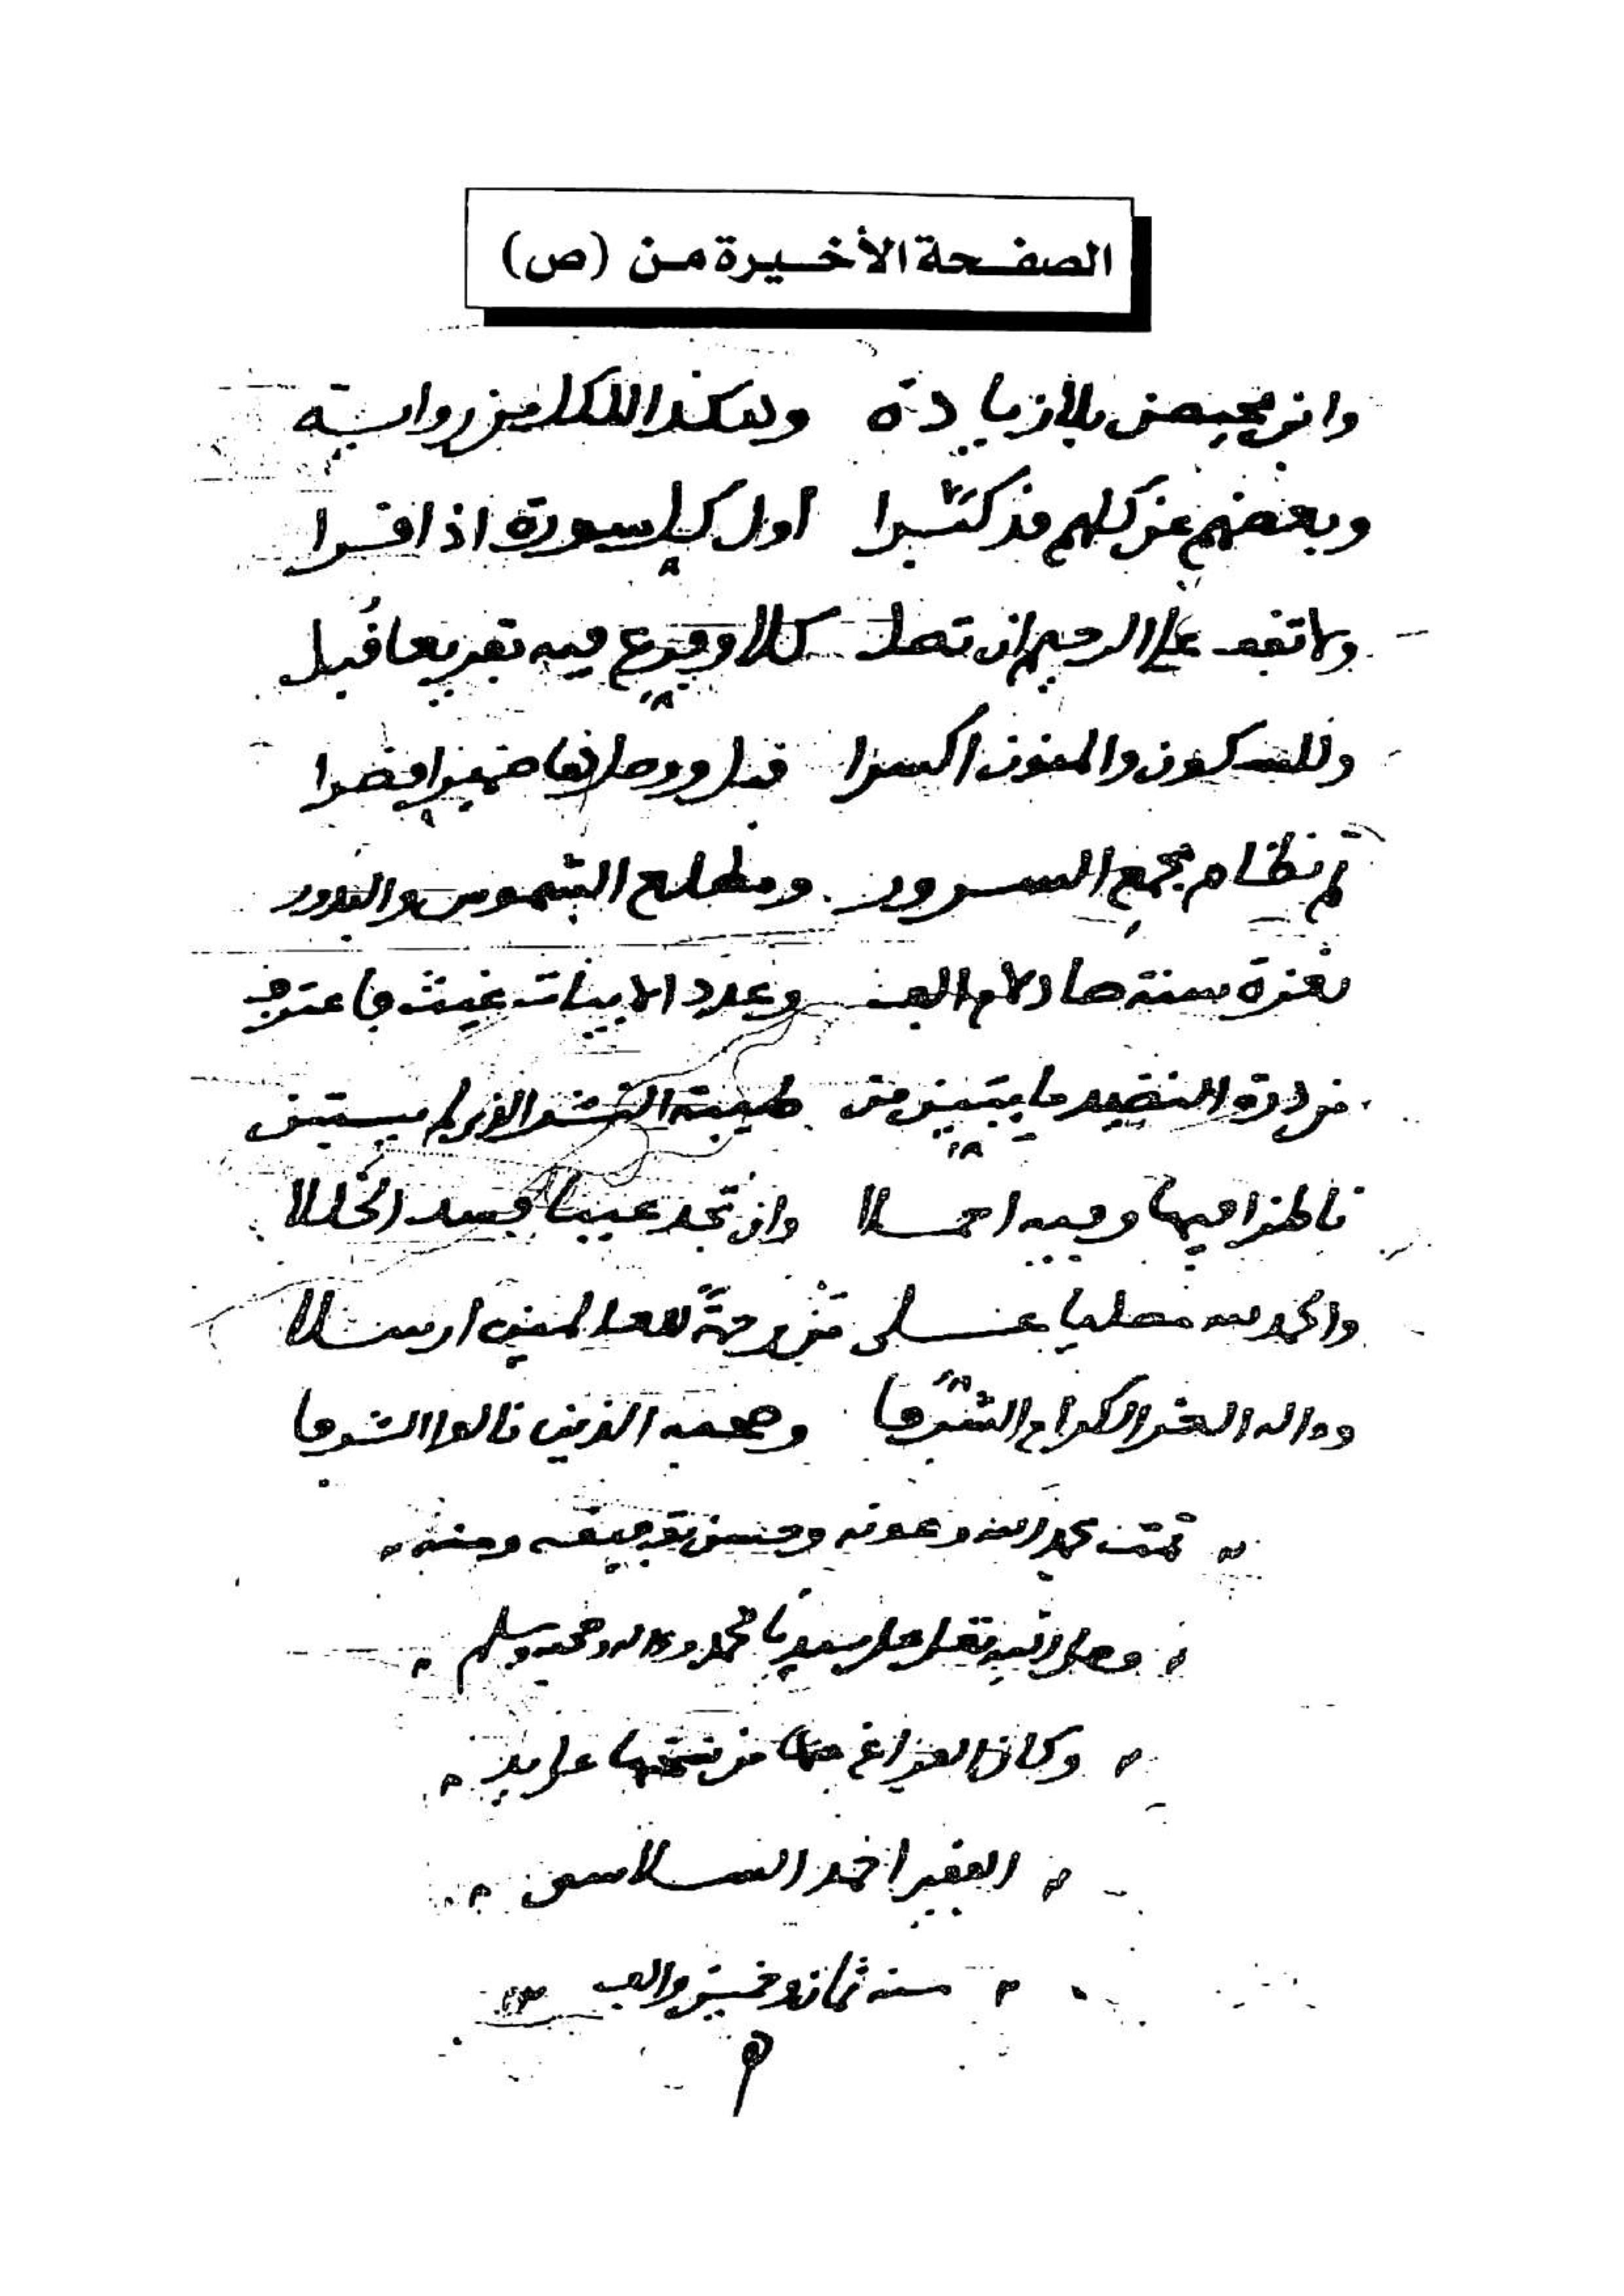 الصفحة الأخيرة من (ص)
وابن محيصن بلا زيادة وهكذا للكل من رواية
وبعضهم عن كلهم قد كثرا أول كل سورة اذا قرا
ولا تقف على الرحيم ان تصل كلا وفرع فيه تفريعا قبل
وللسكون والمنون اكسرا قبل ووصل
تم نظام مجمع السرور ومطلع الشموس والبدور
بغزة سنة الف وعدد الابيات غيث فاعترف
من درة النضيد ما يتبين من طيبة النشر الذي لم يستبن
ناظرا فيها وفيه اجملا وان تجد عيبا فسد الخللا
والحمد لله مصليا على من رحمة للعالمين ارسلا
وءاله الغر الكرام الشرفا وصحبه الذين نالوا الشرفا
تمت بحمد الله وعونه وحسن توفيقه ومنه
وصلى الله تعلى على سيدنا محمد وءاله وصحبه وسلم
وكان الفراغ من نسخها على يد
الفقير احمد
سنة ثمان وخمسين والف